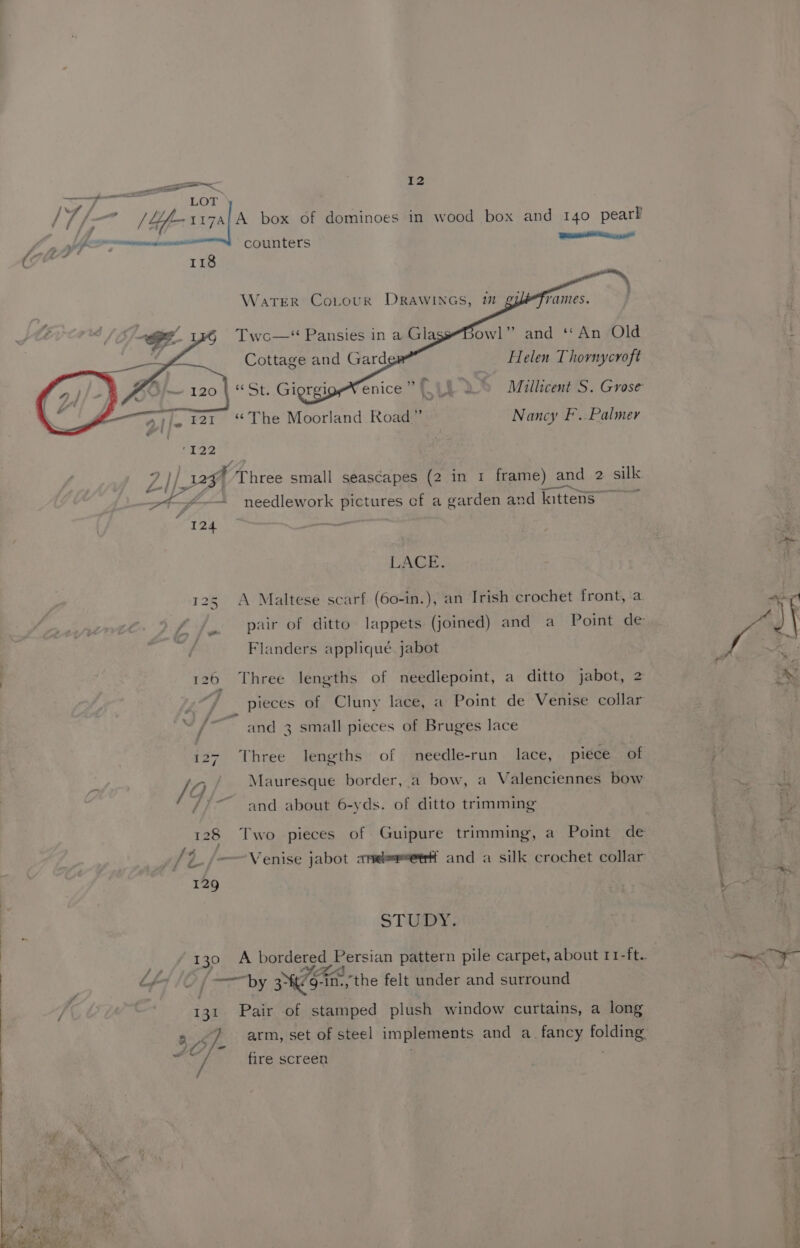 12
LOT
117A A box of dominoes in wood box and 140 pearl
counters
118
WATER COLOUR DRAWINGS, in gilt frames.
Two—“Pansies in a Glass Bowl” and “An Old
Cottage and Garden” Helen Thornycroft
120 “St. Giorgio, Venice” Millicent S. Grose
121 “The Moorland Road” Nancy F. Palmer
122
123 Three small seascapes (2 in 1 frame) and 2 silk
needlework pictures of a garden and kittens
124
LACE.
125 A Maltese scarf (60-in.), an Irish crochet front, a
pair of ditto lappets (joined) and a Point de
Flanders appliqué jabot
126 Three lengths of needlepoint, a ditto jabot, 2
pieces of Cluny lace, a Point de Venise collar
and 3 small pieces of Bruges lace
127 Three lengths of needle-run lace, piece of
Mauresque border, a bow, a Valenciennes bow
and about 6-yds. of ditto trimming
128 Two pieces of Guipure trimming, a Point de
Venise jabot and a silk crochet collar
129
STUDY.
130 A bordered Persian pattern pile carpet, about 11-ft.
by 9-in., the felt under and surround
131 Pair of stamped plush window curtains, a long
arm, set of steel implements and a fancy folding
fire screen